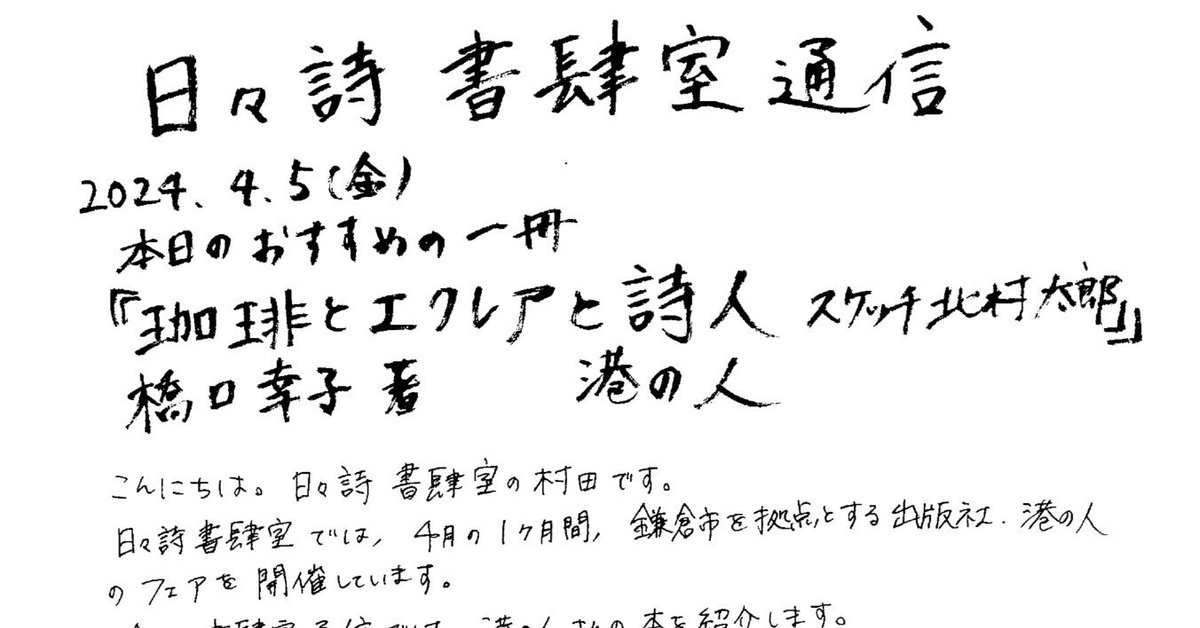 日々詩 書肆室通信
2024.4.5(金)
本日のおすすめの一冊
『珈琲とエクレアと詩人 スケッチ北村太郎』
橋口幸子 著 港の人
こんにちは。日々詩 書肆室の村田です。
日々詩書肆室では、4月の1ヶ月間、鎌倉市を拠点とする出版社、港の人
のフェアを開催しています。
港の人さんの本を紹介します。